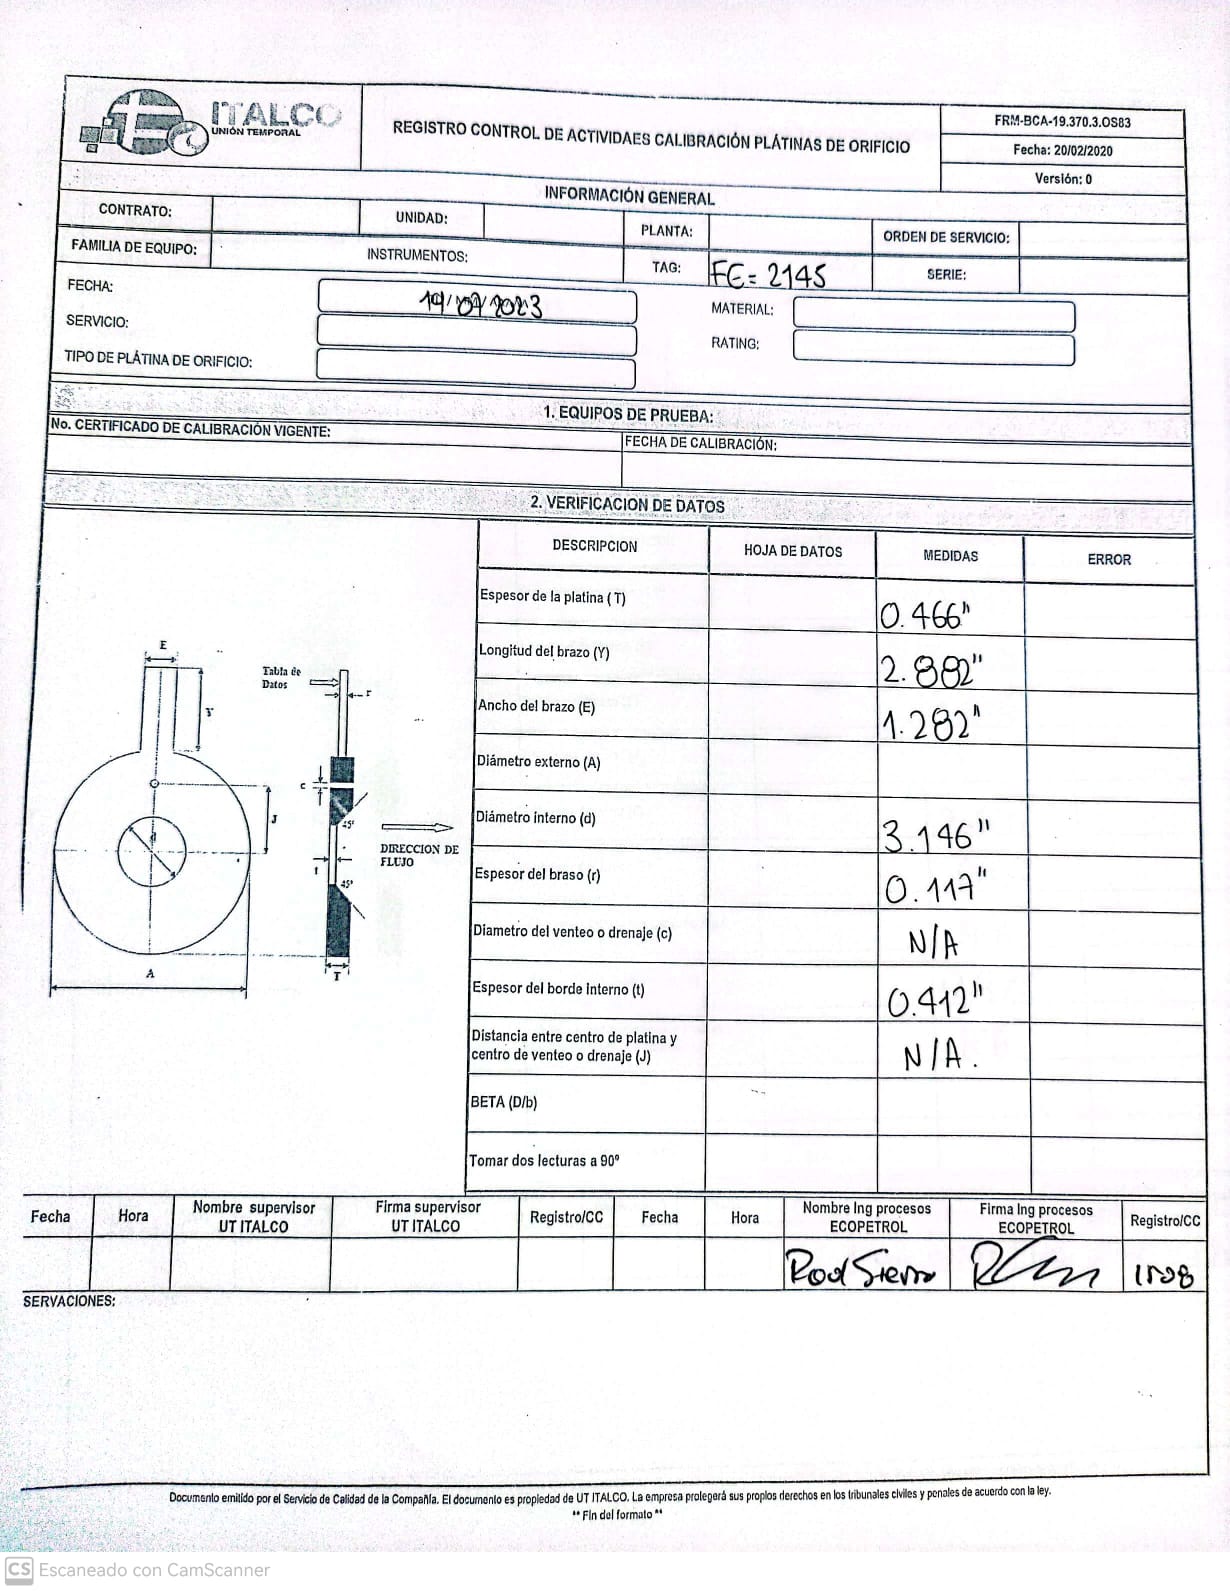 ITALCO
UNIÓN TEMPORAL
REGISTRO CONTROL DE ACTIVIDAES CALIBRACIÓN PLÁTINAS DE ORIFICIO
FRM-BCA-19.370.3.OS83
Fecha: 20/02/2020
Versión: 0
INFORMACIÓN GENERAL
CONTRATO:
UNIDAD:
PLANTA:
ORDEN DE SERVICIO:
FAMILIA DE EQUIPO:
INSTRUMENTOS:
TAG:
FE= 2145
SERIE:
FECHA:
19/07/2023
MATERIAL:
SERVICIO:
RATING:
TIPO DE PLÁTINA DE ORIFICIO:
1. EQUIPOS DE PRUEBA:
No. CERTIFICADO DE CALIBRACIÓN VIGENTE:
FECHA DE CALIBRACIÓN:
2. VERIFICACION DE DATOS
DESCRIPCION
HOJA DE DATOS
MEDIDAS
ERROR
Espesor de la platina (T)
0.466"
Longitud del brazo (Y)
2.882"
Ancho del brazo (E)
1.282"
Diámetro externo (A)
Diámetro interno (d)
3.146"
Espesor del braso (r)
0.117"
Diametro del venteo o drenaje (c)
N/A
Espesor del borde Interno (t)
0.412"
Distancia entre centro de platina y
centro de venteo o drenaje (J)
N/A.
BETA (D/b)
Tomar dos lecturas a 90º
E
Tabla de
Datos
r
Y
c
J
45º
d
DIRECCION DE
FLUJO
t
45º
A
T
Fecha
Hora
Nombre supervisor
UT ITALCO
Firma supervisor
UT ITALCO
Registro/CC
Fecha
Hora
Nombre Ing procesos
ECOPETROL
Firma Ing procesos
ECOPETROL
Registro/CC
Rod Sierra
SERVACIONES:
Documento emitido por el Servicio de Calidad de la Compañía. El documento es propiedad de UT ITALCO. La empresa protegerá sus propios derechos en los tribunales civiles y penales de acuerdo con la ley.
** Fin del formato **
CS Escaneado con CamScanner